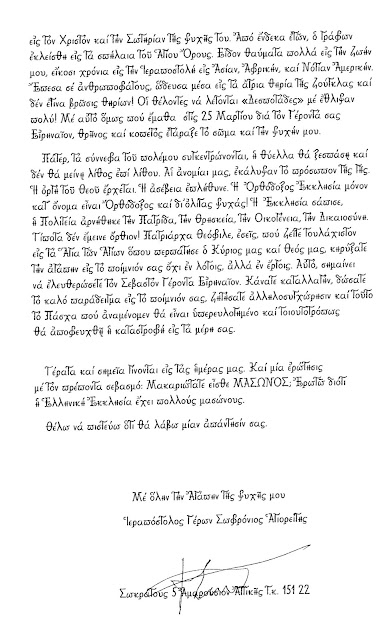 εἰς τὸν Χριστὸν καὶ τὴν Σωτηρίαν τῆς ψυχῆς του. Ἀπὸ ἕνδεκα ἐτῶν, ὁ γράφων
ἐκλείσθη εἰς τὰ σπήλαια τοῦ Ἁγίου Ὄρους. Εἶδον θαύματα πολλὰ εἰς τὴν ζωήν
μου, εἴκοσι χρόνια εἰς τὴν Ἱεραποστολὴ εἰς Ἀσίαν, Ἀφρικήν, καὶ Νότιαν Ἀμερικήν.
Ἔπεσα σὲ ἀνθρωποφάγους, ὥδευσα μέσα εἰς τὰ ἄγρια θηρία τῆς ζούγκλας καὶ
δὲν ἔγινα βρῶσις θηρίων! Οἱ θέλοντες νὰ λέγονται «Δεσποτάδες» μὲ ἔθλιψαν
πολύ! Μὲ αὐτὸ ὅμως ποὺ ἔμαθα στὶς 25 Μαρτίου διὰ τὸν Γέροντά σας
Εἰρηναῖον, θρῆνος καὶ κοπετὸς ἐτάραξε τὸ σῶμα καὶ τὴν ψυχήν μου.
Πάτερ, τὰ σύννεφα τοῦ πολέμου συγκεντρώνονται, ἡ θύελλα θὰ ξεσπάσῃ καὶ
δὲν θὰ μείνῃ λίθος ἐπὶ λίθου. Αἱ ἀνομίαι μας, ἐκάλυψαν τὸ πρόσωπον τῆς γῆς.
Ἡ ὀργὴ τοῦ Θεοῦ ἔρχεται. Ἡ ἀσέβεια ἐπληθύνε. Ἡ Ὀρθόδοξος Ἐκκλησία μόνον
κατ' ὄνομα εἶναι Ὀρθόδοξος καὶ δι' ὀλίγας ψυχάς! Ἡ Ἐκκλησία σάπισε,
ἡ Πολιτεία ἀρνήθηκε τὴν Πατρίδα, τὴν Θρησκεία, τὴν Οἰκογένεια, τὴν Δικαιοσύνη.
Τίποτα δὲν ἔμεινε ὄρθιον! Πατριάρχα Θεόφιλε, ἐσεῖς, ποὺ ζεῖτε τουλάχιστον
εἰς τὰ Ἅγια τῶν Ἁγίων ὅπου περπάτησε ὁ Κύριος μας καὶ Θεός μας, κηρύξατε
τὴν ἀγάπην εἰς τὸ ποίμνιόν σας ὄχι ἐν λόγοις, ἀλλὰ ἐν ἔργοις. Αὐτὸ, σημαίνει
νὰ ἐλευθερώσετε τὸν Σεβαστὸν Γέροντα Εἰρηναῖον. Κάνατε καταλλαγὴν, δώσατε
τὸ καλὸ παράδειγμα εἰς τὸ ποίμνιόν σας, ζητήσατε ἀλληλοσυγχώρησιν καὶ τοῦτο
τὸ Πάσχα ποὺ ἀναμένομεν θὰ εἶναι ὑπερευλογημένο καὶ τοιουτοτρόπως
θὰ ἀποφευχθῇ ἡ καταστροφὴ εἰς τὰ μέρη σας.
Τέρατα καὶ σημεῖα γίνονται εἰς τὰς ἡμέρας μας. Καὶ μία ἐρώτησις
μὲ τὸν πρέποντα σεβασμό: Μακαριώτατε εἶσθε ΜΑΣΩΝΟΣ; Ἐρωτῶ διότι
ἡ Ἑλληνικὴ Ἐκκλησία ἔχει πολλοὺς μασώνους.
Θέλω νὰ πιστεύω ὅτι θὰ λάβω μίαν ἀπάντησίν σας.
Μὲ ὅλην τὴν Ἀγάπην τῆς ψυχῆς μου
Ἱεραπόστολος Γέρων Σωφρόνιος Ἁγιορείτης
Σωκράτους 5 Ἀμαρούσιον Ἀττικῆς Τ.κ. 151 22